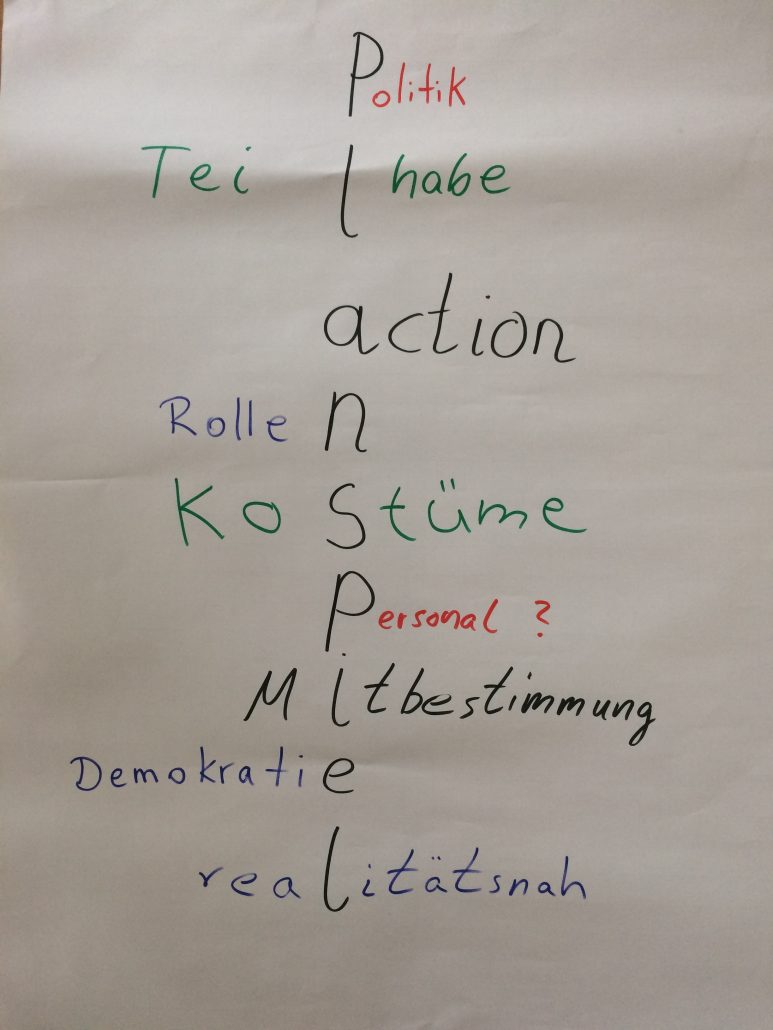 Politik
Teilhabe
action
Rollen
Kostüme
Personal ?
Mitbestimmung
Demokratie
realitätsnah